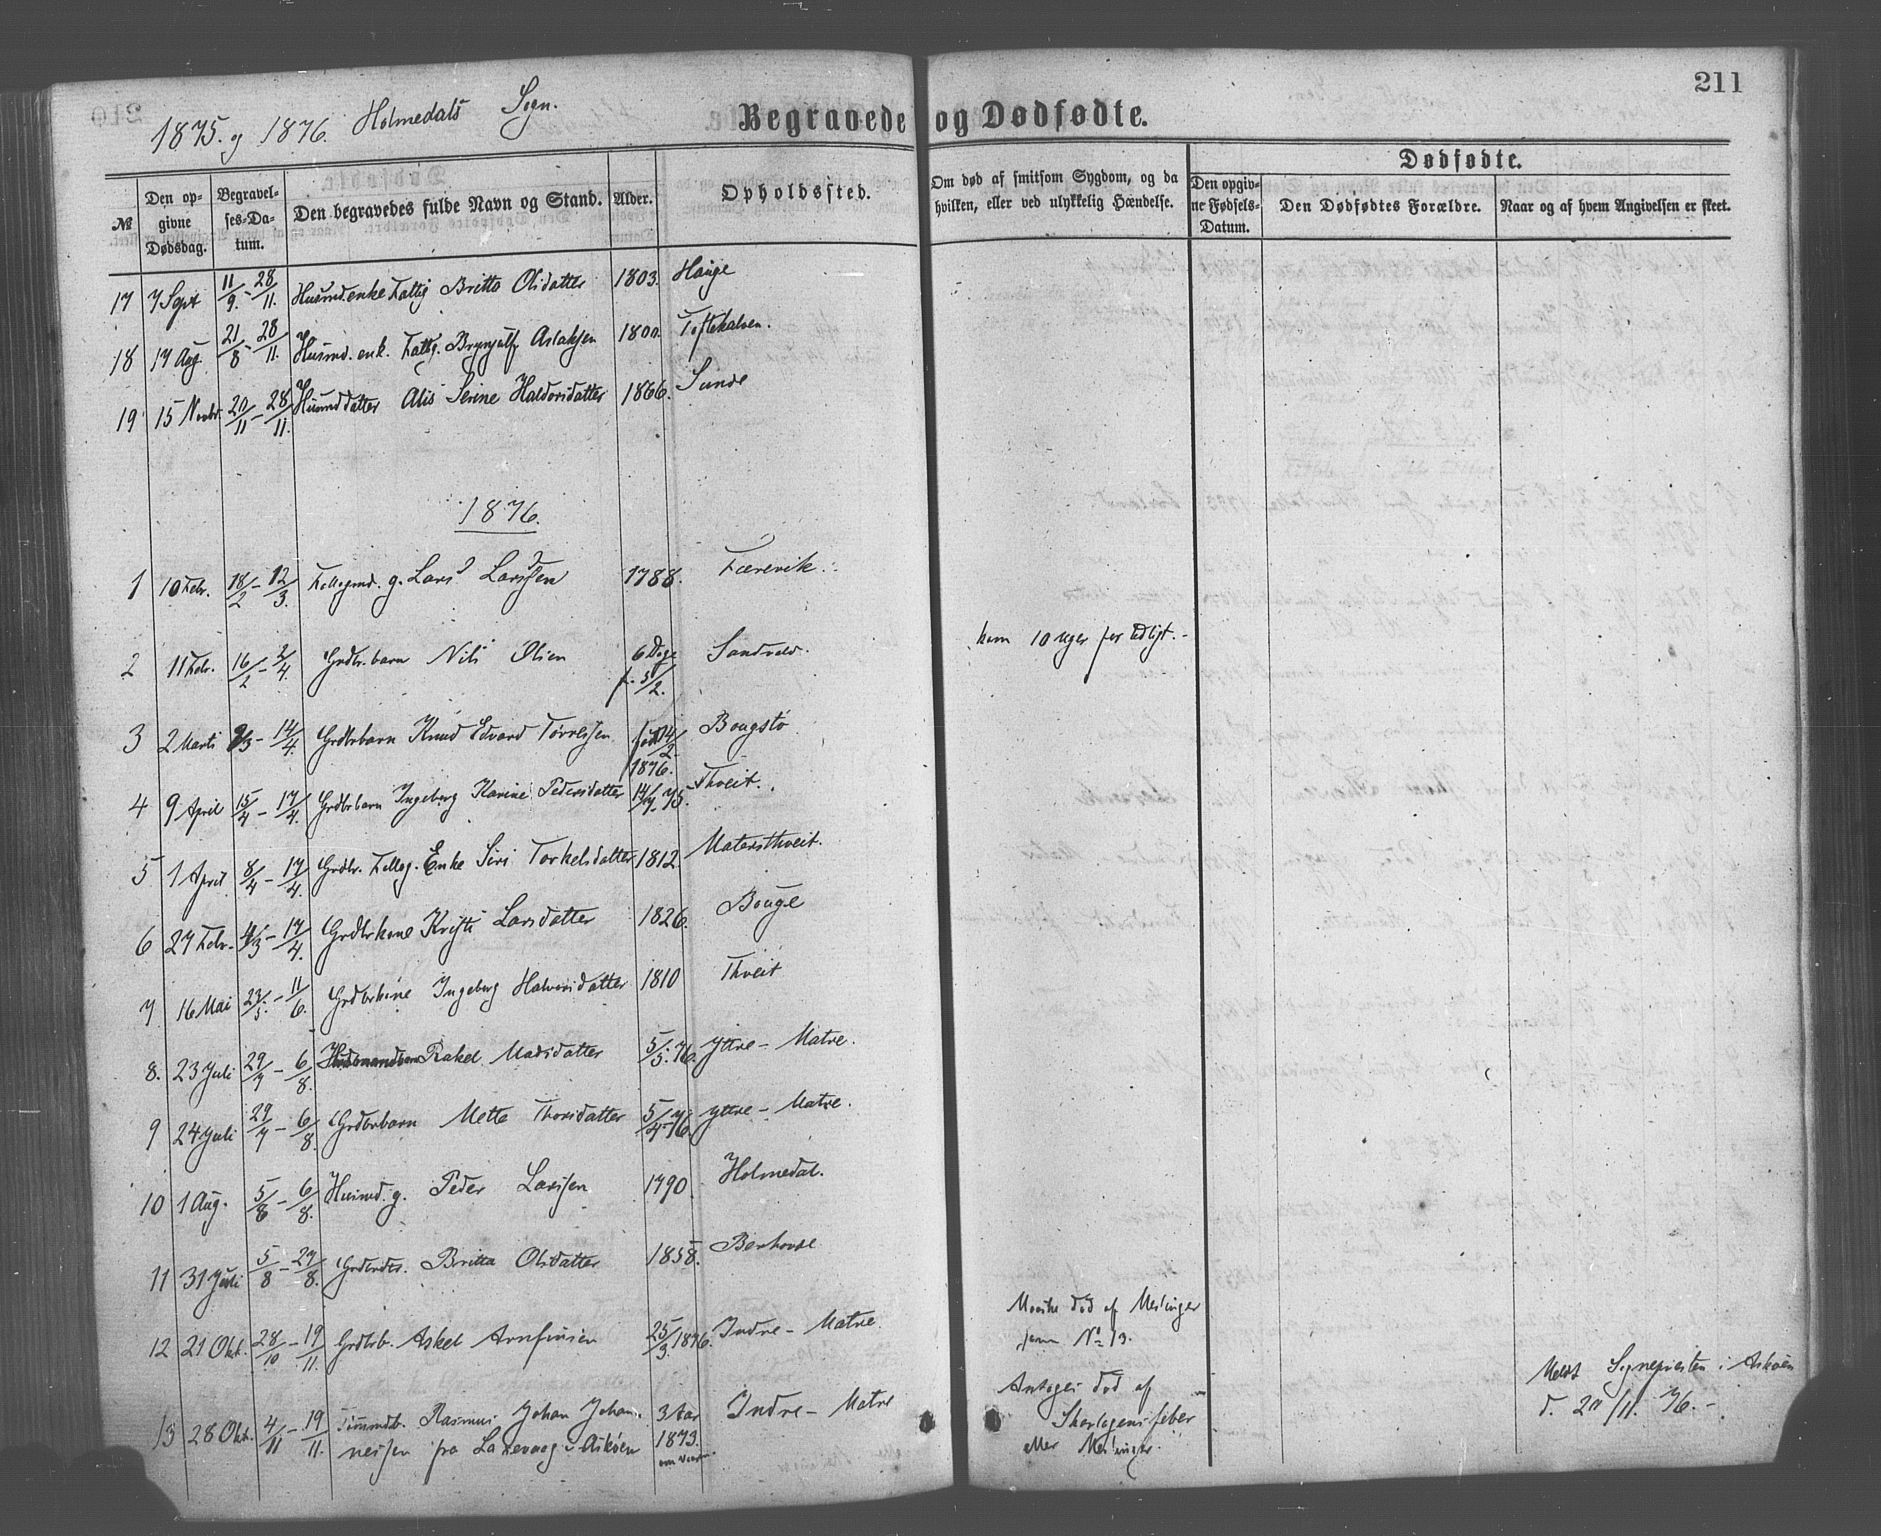 211
1875. og 1876. Holmedals Sogn.
Begravede og Dødfødte.
Dødfødte.
№ Den opgivne Dødsdag. Begravelses-Datum. Den begravedes fulde Navn og Stand. Alder. Opholdssted. Om død af smitsom Sygdom, og da hvilken, eller ved ulykkelig Hændelse. Den opgivne Fødsels-Datum. Den Dødfødtes Forældre. Naar og af hvem Angivelsen er skeet.
17 7 Sept 11/9 - 28/11. Husmd.enke Fattig Britta Olsdatter 1803. Hauge
18 17 Aug. 21/8 - 28/11. Husmd. enk. Fattg. Brynjulf Aslaksen 1800. Toftekalven.
19 15 Novbr. 20/11 - 28/11. Husmddatter Alis Serine Haldorsdatter 1866. Sunde
1876.
1 10 Febr. 18/2 - 12/3. Føllogmd. g. Lars Larssen 1788. Færevik.
2 11 Febr. 16/2 - 2/4. Grdbr.barn Nils Olsen 6 Dage f. 5/2. Sandvold. kom 10 Uger for tidligt.
3 2 Marts 9/3 - 17/4. Grdbrbarn Knud Edvard Tørressen født 14/2 1876. Bougstø
4 9 April 15/4 - 17/4. Grdbrbarn Ingeborg Karine Pedersdatter 14/7 75. Thveit.
5 1 April 8/4 - 17/4. Grdbr. Føllog. Enke Siri Torkelsdatter 1812. Matersthveit.
6 27 Febr. 4/3 - 17/4. Grdbrkone Kristi Larsdatter 1826. Bouge
7 16 Mai 23/5 - 11/6. Grdbrkone Ingeborg Halvorsdatter 1810 Thveit
8. 23 Juli 29/7 - 6/8. Husmandbarn Rakel Madsdatter 5/5. 76. Yttre - Matre.
9 24 Juli 29/7 - 6/8. Grdbrbarn Mette Thorsdatter 5/4 76. Yttre - Matre.
10 1 Aug. 5/8 - 6/8. Husmd. g. Peder Larssen 1790. Holmedal.
11 31 Juli 5/8 - 27/8. Britta Olsdatter 1858.
12 21 Okt. 28/10 - 19/11. Grdbrb. Askel Arnfinsen 25/3 1876. Indre - Matre. Maaske død af Meslinger
som No 13.
13 28 Okt. 4/11 - 19/11. Rasmus Johan Johan- 3 Aar Indre - Matre Antages død af Meldt Sognepresten i Askøen
nessen fra i Askøen 1873. Skarlagensfeber d. 20/11. 76.
eller Meslinger.